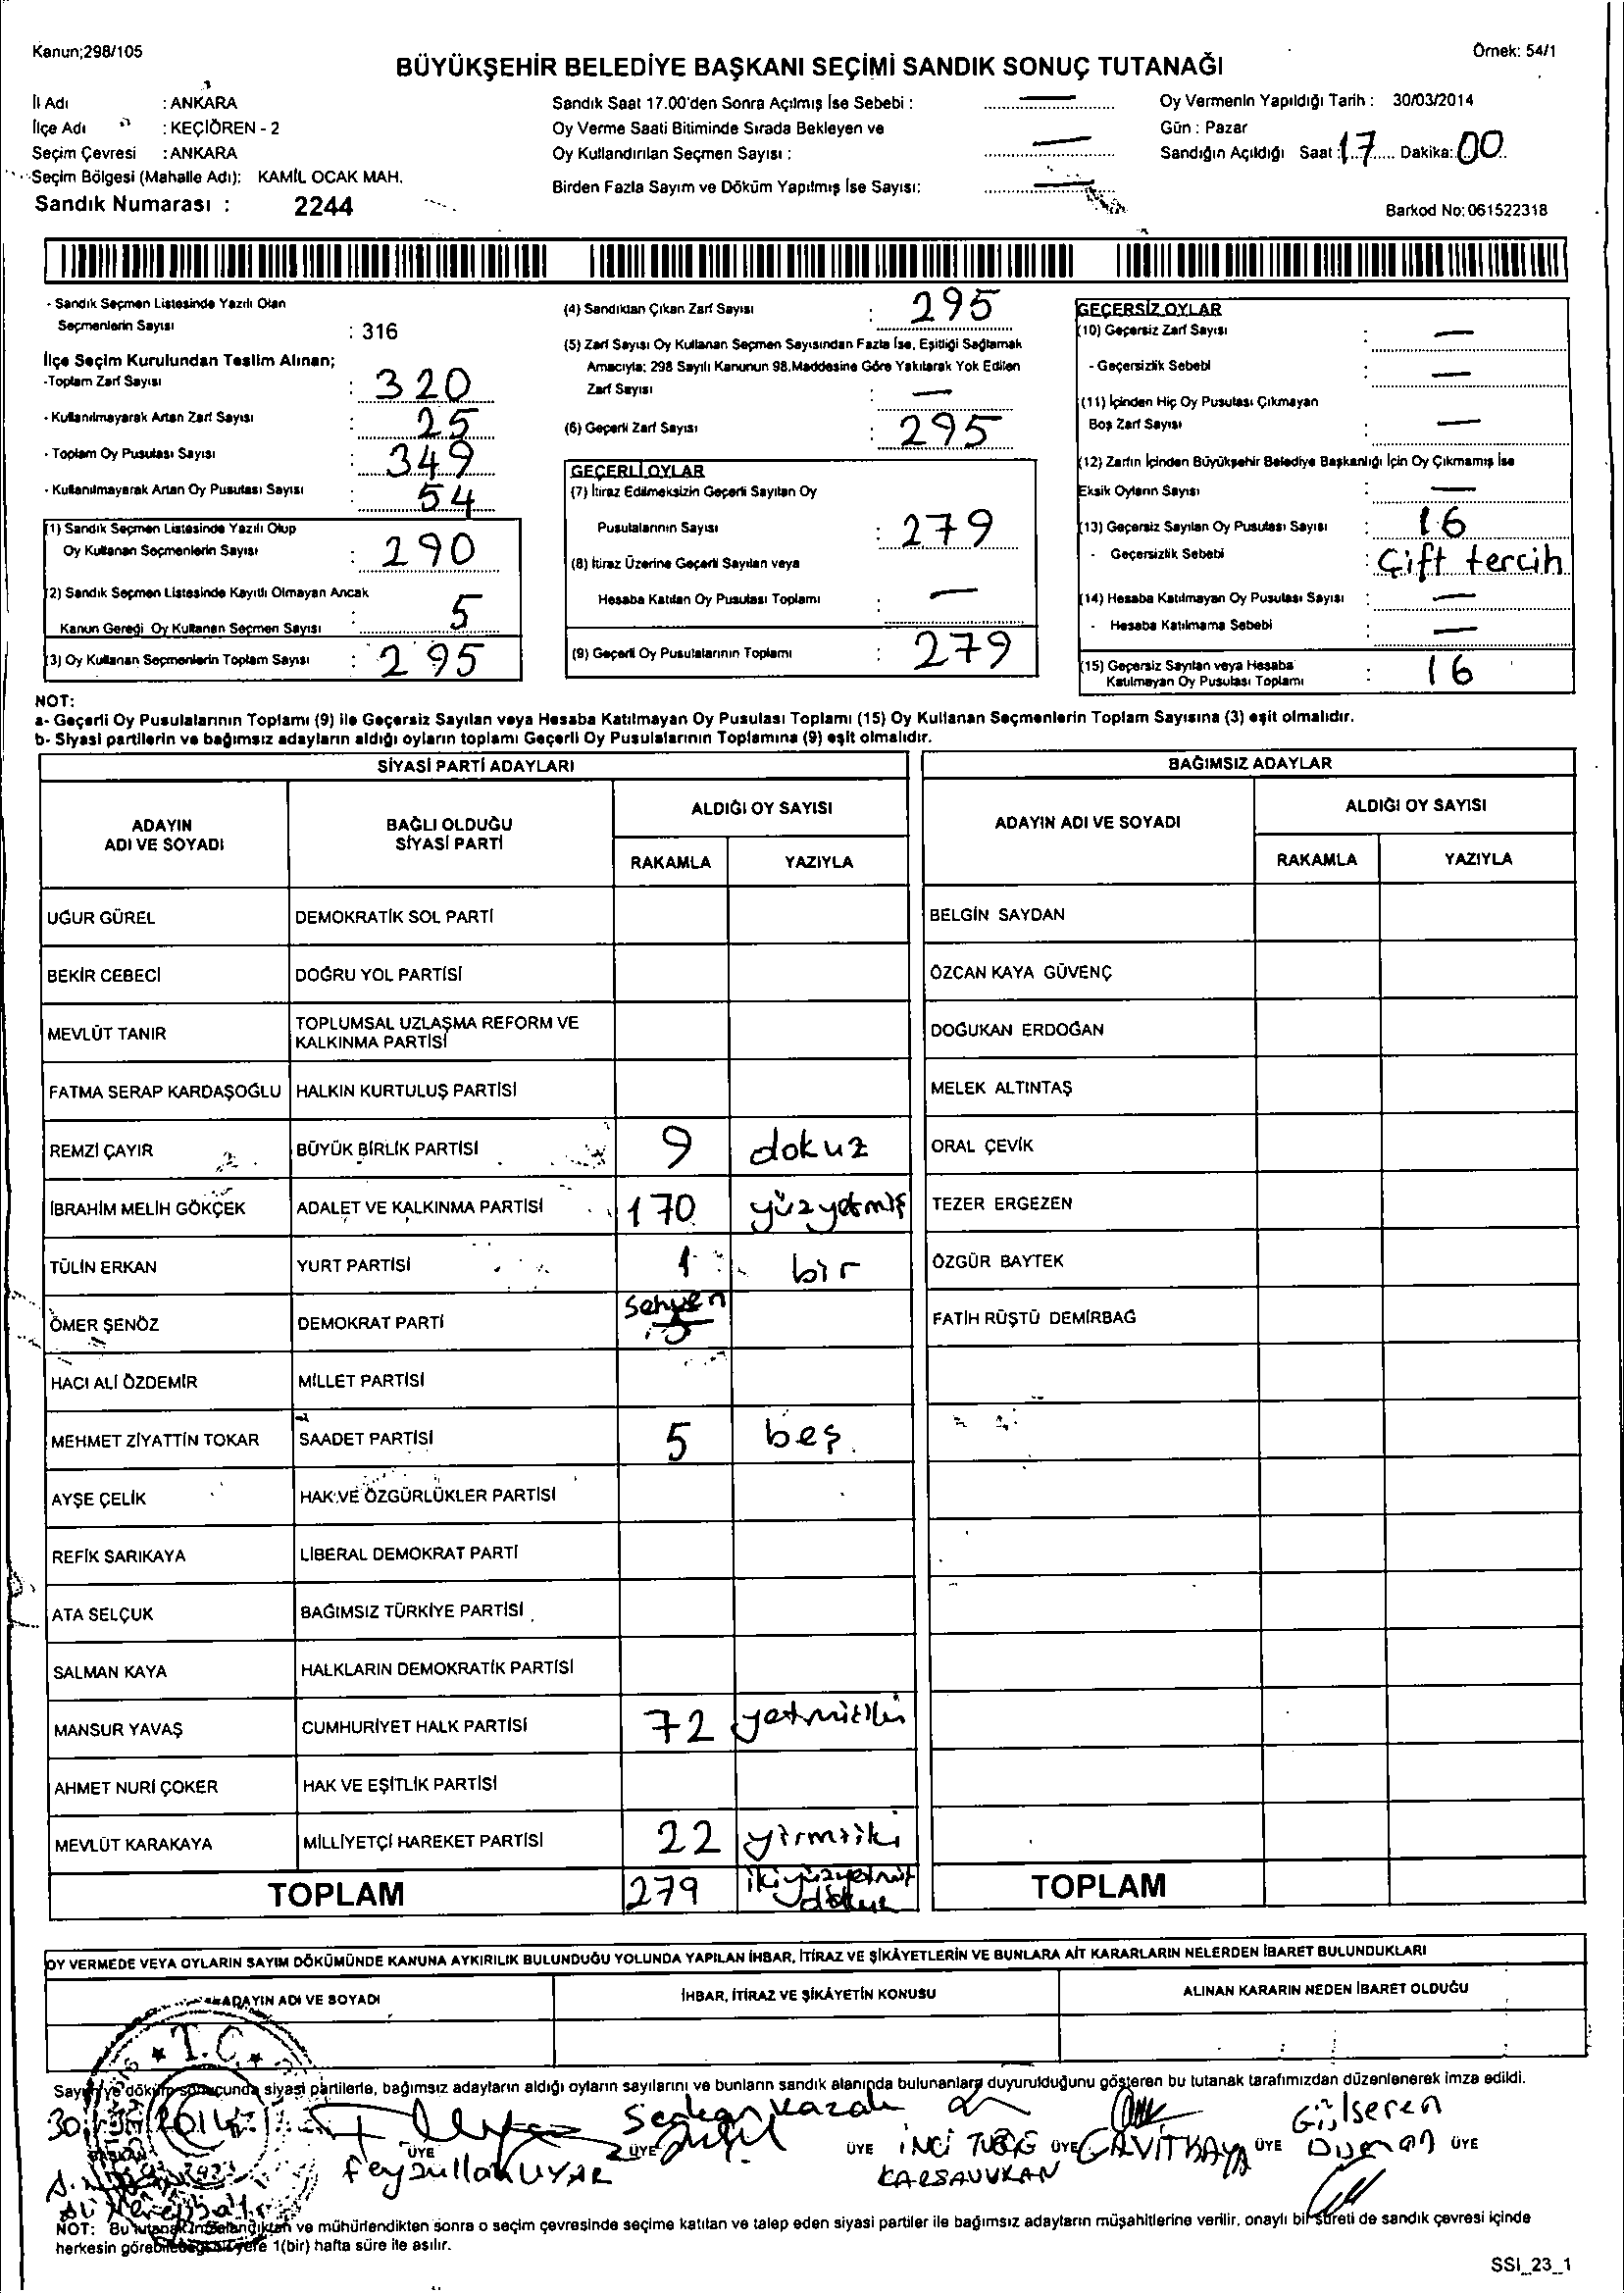 Kanun;298/105
Örnek: 54/1
BÜYÜKŞEHİR BELEDİYE BAŞKANI SEÇİMİ SANDIK SONUÇ TUTANAĞI
İl Adı : ANKARA
İlçe Adı : KEÇİÖREN - 2
Seçim Çevresi : ANKARA
Seçim Bölgesi (Mahalle Adı): KAMİL OCAK MAH.
Sandık Numarası : 2244
Sandık Saat 17.00'den Sonra Açılmış İse Sebebi : —
Oy Verme Saati Bitiminde Sırada Bekleyen ve
Oy Kullandırılan Seçmen Sayısı : —
Birden Fazla Sayım ve Döküm Yapılmış İse Sayısı: —
Oy Vermenin Yapıldığı Tarih : 30/03/2014
Gün : Pazar
Sandığın Açıldığı Saat : 17 Dakika: 00
Barkod No: 061522318
- Sandık Seçmen Listesinde Yazılı Olan
Seçmenlerin Sayısı : 316
İlçe Seçim Kurulundan Teslim Alınan;
-Toplam Zarf Sayısı : 320
- Kullanılmayarak Artan Zarf Sayısı : 25
- Toplam Oy Pusulası Sayısı : 349
- Kullanılmayarak Artan Oy Pusulası Sayısı : 54
(1) Sandık Seçmen Listesinde Yazılı Olup
Oy Kullanan Seçmenlerin Sayısı : 290
(2) Sandık Seçmen Listesinde Kayıtlı Olmayan Ancak
Kanun Gereği Oy Kullanan Seçmen Sayısı : 5
(3) Oy Kullanan Seçmenlerin Toplam Sayısı : 295
(4) Sandıktan Çıkan Zarf Sayısı : 295
(5) Zarf Sayısı Oy Kullanan Seçmen Sayısından Fazla İse, Eşitliği Sağlamak
Amacıyla; 298 Sayılı Kanunun 98.Maddesine Göre Yakılarak Yok Edilen
Zarf Sayısı : —
(6) Geçerli Zarf Sayısı : 295
GEÇERLİ OYLAR
(7) İtiraz Edilmeksizin Geçerli Sayılan Oy
Pusulalarının Sayısı : 279
(8) İtiraz Üzerine Geçerli Sayılan veya
Hesaba Katılan Oy Pusulası Toplamı : —
(9) Geçerli Oy Pusulalarının Toplamı : 279
GEÇERSİZ OYLAR
(10) Geçersiz Zarf Sayısı : —
- Geçersizlik Sebebi : —
(11) İçinden Hiç Oy Pusulası Çıkmayan
Boş Zarf Sayısı : —
(12) Zarfın İçinden Büyükşehir Belediye Başkanlığı İçin Oy Çıkmamış İse
Eksik Oyların Sayısı : —
(13) Geçersiz Sayılan Oy Pusulası Sayısı : 16
- Geçersizlik Sebebi : Çift tercih
(14) Hesaba Katılmayan Oy Pusulası Sayısı : —
- Hesaba Katılmama Sebebi : —
(15) Geçersiz Sayılan veya Hesaba
Katılmayan Oy Pusulası Toplamı : 16
NOT:
a- Geçerli Oy Pusulalarının Toplamı (9) ile Geçersiz Sayılan veya Hesaba Katılmayan Oy Pusulası Toplamı (15) Oy Kullanan Seçmenlerin Toplam Sayısına (3) eşit olmalıdır.
b- Siyasi partilerin ve bağımsız adayların aldığı oyların toplamı Geçerli Oy Pusulalarının Toplamına (9) eşit olmalıdır.
SİYASİ PARTİ ADAYLARI
ADAYIN
ADI VE SOYADI
BAĞLI OLDUĞU
SİYASİ PARTİ
ALDIĞI OY SAYISI
RAKAMLA YAZIYLA
UĞUR GÜREL DEMOKRATİK SOL PARTİ
BEKİR CEBECİ DOĞRU YOL PARTİSİ
MEVLÜT TANIR TOPLUMSAL UZLAŞMA REFORM VE
KALKINMA PARTİSİ
FATMA SERAP KARDAŞOĞLU HALKIN KURTULUŞ PARTİSİ
REMZİ ÇAYIR BÜYÜK BİRLİK PARTİSİ 9 dokuz
İBRAHİM MELİH GÖKÇEK ADALET VE KALKINMA PARTİSİ 170 yüzyetmiş
TÜLİN ERKAN YURT PARTİSİ 1 bir
ÖMER ŞENÖZ DEMOKRAT PARTİ sehven
HACI ALİ ÖZDEMİR MİLLET PARTİSİ
MEHMET ZİYATTİN TOKAR SAADET PARTİSİ 5 beş
AYŞE ÇELİK HAK VE ÖZGÜRLÜKLER PARTİSİ
REFİK SARIKAYA LİBERAL DEMOKRAT PARTİ
ATA SELÇUK BAĞIMSIZ TÜRKİYE PARTİSİ
SALMAN KAYA HALKLARIN DEMOKRATİK PARTİSİ
MANSUR YAVAŞ CUMHURİYET HALK PARTİSİ 72 yetmişiki
AHMET NURİ ÇOKER HAK VE EŞİTLİK PARTİSİ
MEVLÜT KARAKAYA MİLLİYETÇİ HAREKET PARTİSİ 22 yirmiiki
TOPLAM 279 ikiyüzyetmiş
dokuz
BAĞIMSIZ ADAYLAR
ADAYIN ADI VE SOYADI
ALDIĞI OY SAYISI
RAKAMLA YAZIYLA
BELGİN SAYDAN
ÖZCAN KAYA GÜVENÇ
DOĞUKAN ERDOĞAN
MELEK ALTINTAŞ
ORAL ÇEVİK
TEZER ERGEZEN
ÖZGÜR BAYTEK
FATİH RÜŞTÜ DEMİRBAĞ
TOPLAM
OY VERMEDE VEYA OYLARIN SAYIM DÖKÜMÜNDE KANUNA AYKIRILIK BULUNDUĞU YOLUNDA YAPILAN İHBAR, İTİRAZ VE ŞİKÂYETLERİN VE BUNLARA AİT KARARLARIN NELERDEN İBARET BULUNDUKLARI
ADAYIN ADI VE SOYADI
İHBAR, İTİRAZ VE ŞİKÂYETİN KONUSU
ALINAN KARARIN NEDEN İBARET OLDUĞU
T.C.
Sayım ve döküm sonucunda siyasi partilerle, bağımsız adayların aldığı oyların sayılarını ve bunların sandık alanında bulunanlara duyurulduğunu gösteren bu tutanak tarafımızdan düzenlenerek imza edildi.
30 2014
Gülseren
ÜYE ÜYE ÜYE İNCİ TUĞÇE ÜYE CAVİT KAYA ÜYE Duman ÜYE
Feyzullah UYAR KARSAVURAN
NOT: Bu tutanak imzalandıktan ve mühürlendikten sonra o seçim çevresinde seçime katılan ve talep eden siyasi partiler ile bağımsız adayların müşahitlerine verilir, onaylı bir sureti de sandık çevresi içinde
herkesin görebileceği bir yere 1(bir) hafta süre ile asılır.
SSI_23_1